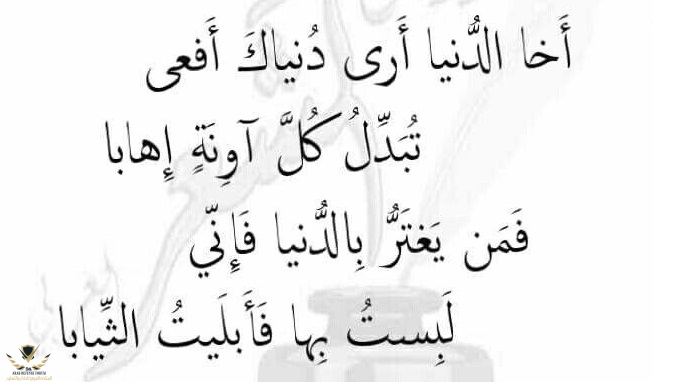 أَخا الدُّنيا أَرى دُنياكَ أَفعى
تُبَدِّلُ كُلَّ آوِنَةٍ إِهابا
فَمَن يَغتَرُّ بِالدُّنيا فَإِنّي
لَبِستُ بِها فَأَبلَيتُ الثِّيابا